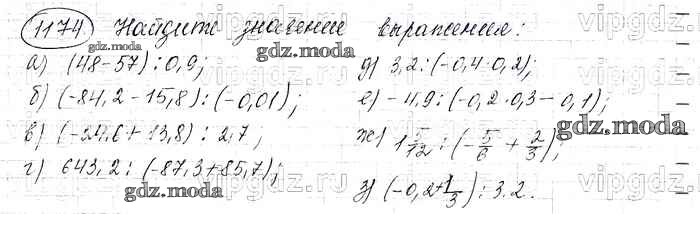 1174 Найдите значение выражения:
а) (48-57):0,9;
б) (-84,2-15,8):(-0,01);
в) (-24,6+13,8):2,7;
г) 643,2:(-87,3+85,7);
д) 3,2:(-0,4·0,2);
е) -4,9:(-0,2·0,3-0,1);
ж) 1 5/12:(-5/6+2/3);
з) (-0,2+1/3):3.2.
gdz.moda
gdz.moda
gdz.moda
gdz.moda
gdz.moda
vipgdz.ru
vipgdz.ru
vipgdz.ru